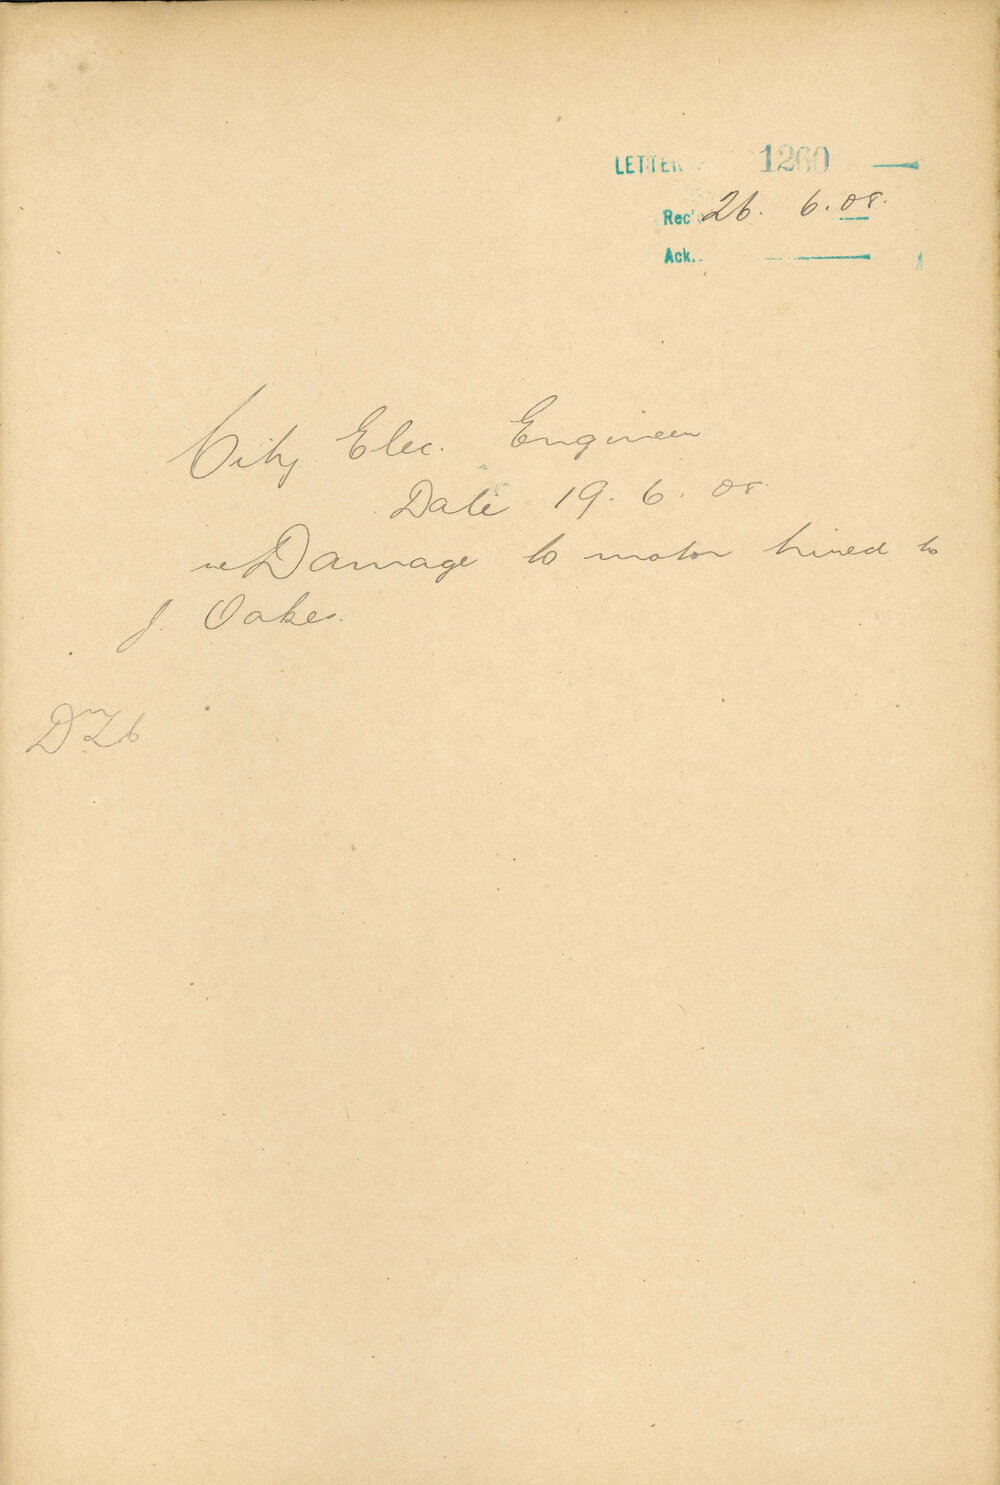 LETTER 1260
Rec'd 26. 6. 08.
Ack.
City Elec. Engineer
Date 19. 6. 08
re Damage to motor hired to
J. Oakes.